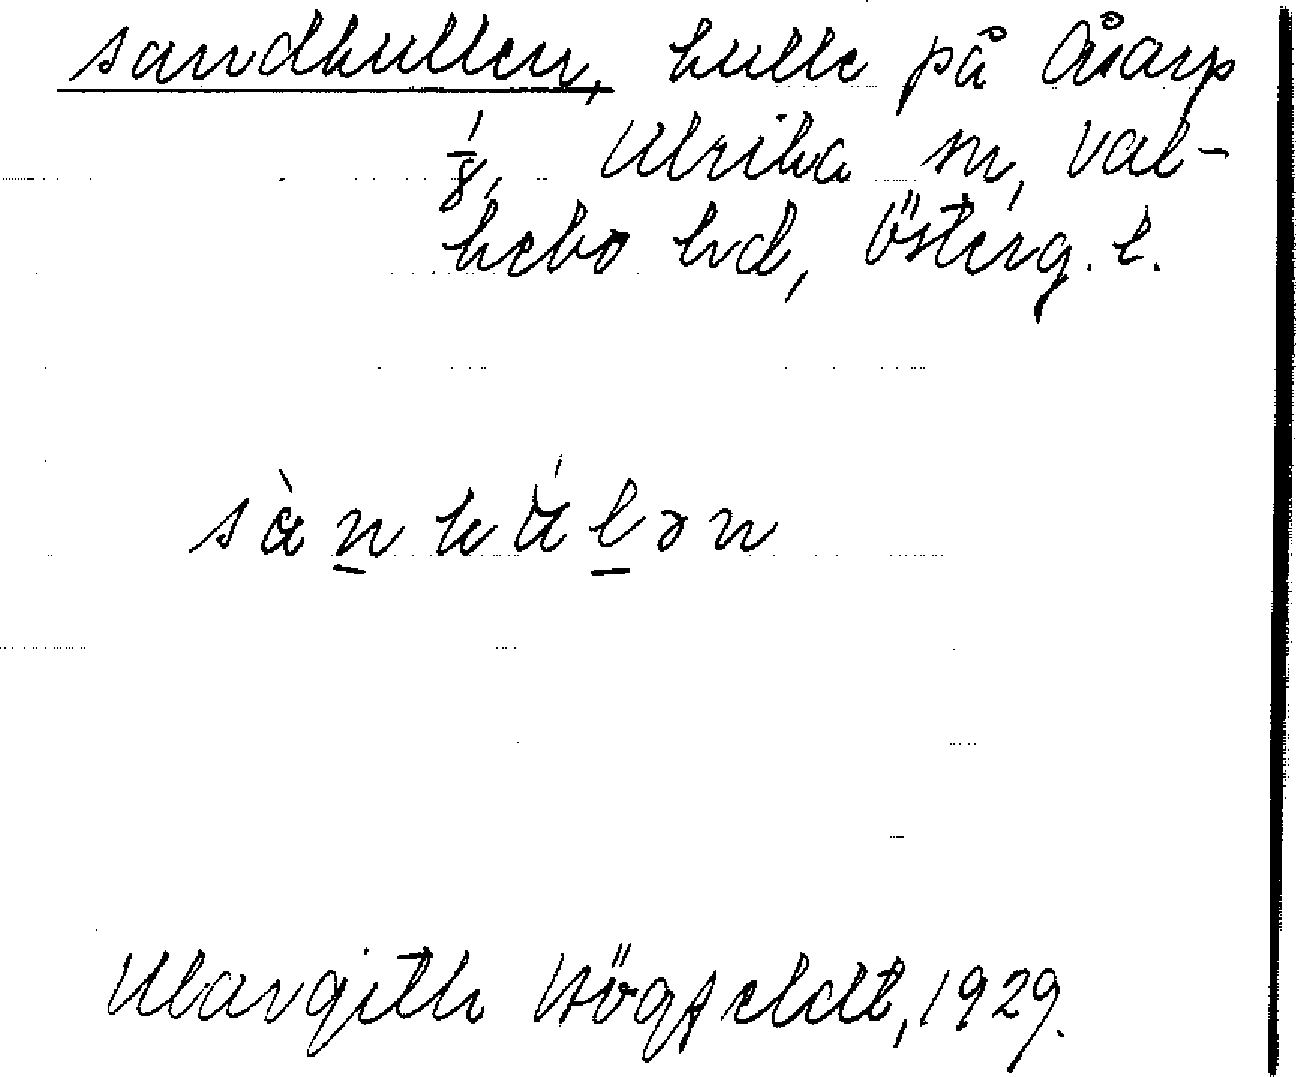 Sandkullen, kulle på Åsarp
1/8, Ulrika sn, Val-
kebo hd, Österg. l.
sànkúlən
Margith Högfeldt, 1929.